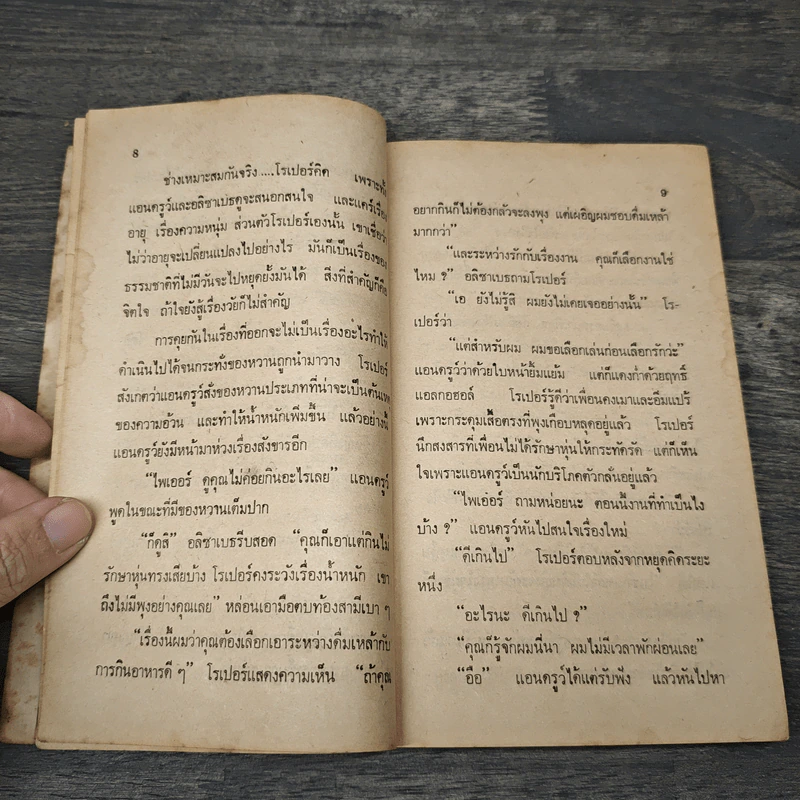 8
ช่างเหมาะสมกันจริง....โรเปอร์คิด เพราะทั้ง
แอนดรูว์และอลิซาเบธดูจะสนอกสนใจ และแคร์เรื่อง
อายุ เรื่องความหนุ่ม ส่วนตัวโรเปอร์เองนั้น เขาเชื่อว่า
ไม่ว่าอายุจะเปลี่ยนแปลงไปอย่างไร มันก็เป็นเรื่องของ
ธรรมชาติที่ไม่มีวันจะไปหยุดยั้งมันได้ สิ่งที่สำคัญก็คือ
จิตใจ ถ้าใจยังสู้เรื่องวัยก็ไม่สำคัญ
การคุยกันในเรื่องที่ออกจะไม่เป็นเรื่องอะไรทำให้
ดำเนินไปได้จนกระทั่งของหวานถูกนำมาวาง โรเปอร์
สังเกตว่าแอนดรูว์สั่งของหวานประเภทที่น่าจะเป็นต้นเหตุ
ของความอ้วน และทำให้น้ำหนักเพิ่มขึ้น แล้วอย่างนี้
แอนดรูว์ยังมีหน้ามาห่วงเรื่องสังขารอีก
“ไพเออร์ ดูคุณไม่ค่อยกินอะไรเลย” แอนดรูว์
พูดในขณะที่มีของหวานเต็มปาก
“ก็ดูสิ” อลิซาเบธรีบสอด “คุณก็เอาแต่กินไม่
รักษาหุ่นทรงเสียบ้าง โรเปอร์คงระวังเรื่องน้ำหนัก เขา
ถึงไม่มีพุงอย่างคุณเลย” หล่อนเอามือตบท้องสามีเบา ๆ
“เรื่องนี้ผมว่าคุณต้องเลือกเอาระหว่างดื่มเหล้ากับ
การกินอาหารดี ๆ” โรเปอร์แสดงความเห็น “ถ้าคุณ
9
อยากกินก็ไม่ต้องกลัวจะลงพุง แต่เผอิญผมชอบดื่มเหล้า
มากกว่า”
“และระหว่างรักกับเรื่องงาน คุณก็เลือกงานใช่
ไหม ?” อลิซาเบธถามโรเปอร์
“เอ ยังไม่รู้สิ ผมยังไม่เคยเจออย่างนั้น” โร-
เปอร์ว่า
“แต่สำหรับผม ผมขอเลือกเล่นก่อนเลือกรักว่ะ”
แอนดรูว์ว่าด้วยใบหน้ายิ้มแย้ม แต่ก็แดงก่ำด้วยฤทธิ์
แอลกอฮอล์ โรเปอร์รู้ดีว่าเพื่อนคงเมาและอิ่มแปร้
เพราะกระดุมเสื้อตรงที่พุงเกือบหลุดอยู่แล้ว โรเปอร์
นึกสงสารที่เพื่อนไม่ได้รักษาหุ่นให้กระทัดรัด แต่ก็เห็น
ใจเพราะแอนดรูว์เป็นนักบริโภคตัวกลั่นอยู่แล้ว
“ไพเออร์ ถามหน่อยนะ ตอนนี้งานที่ทำเป็นไง
บ้าง ?” แอนดรูว์หันไปสนใจเรื่องใหม่
“ดีเกินไป” โรเปอร์ตอบหลังจากหยุดคิดระยะ
หนึ่ง
“อะไรนะ ดีเกินไป ?”
“คุณก็รู้จักผมนี่นา ผมไม่มีเวลาพักผ่อนเลย”
“อือ” แอนดรูว์ได้แต่รับฟัง แล้วหันไปหา